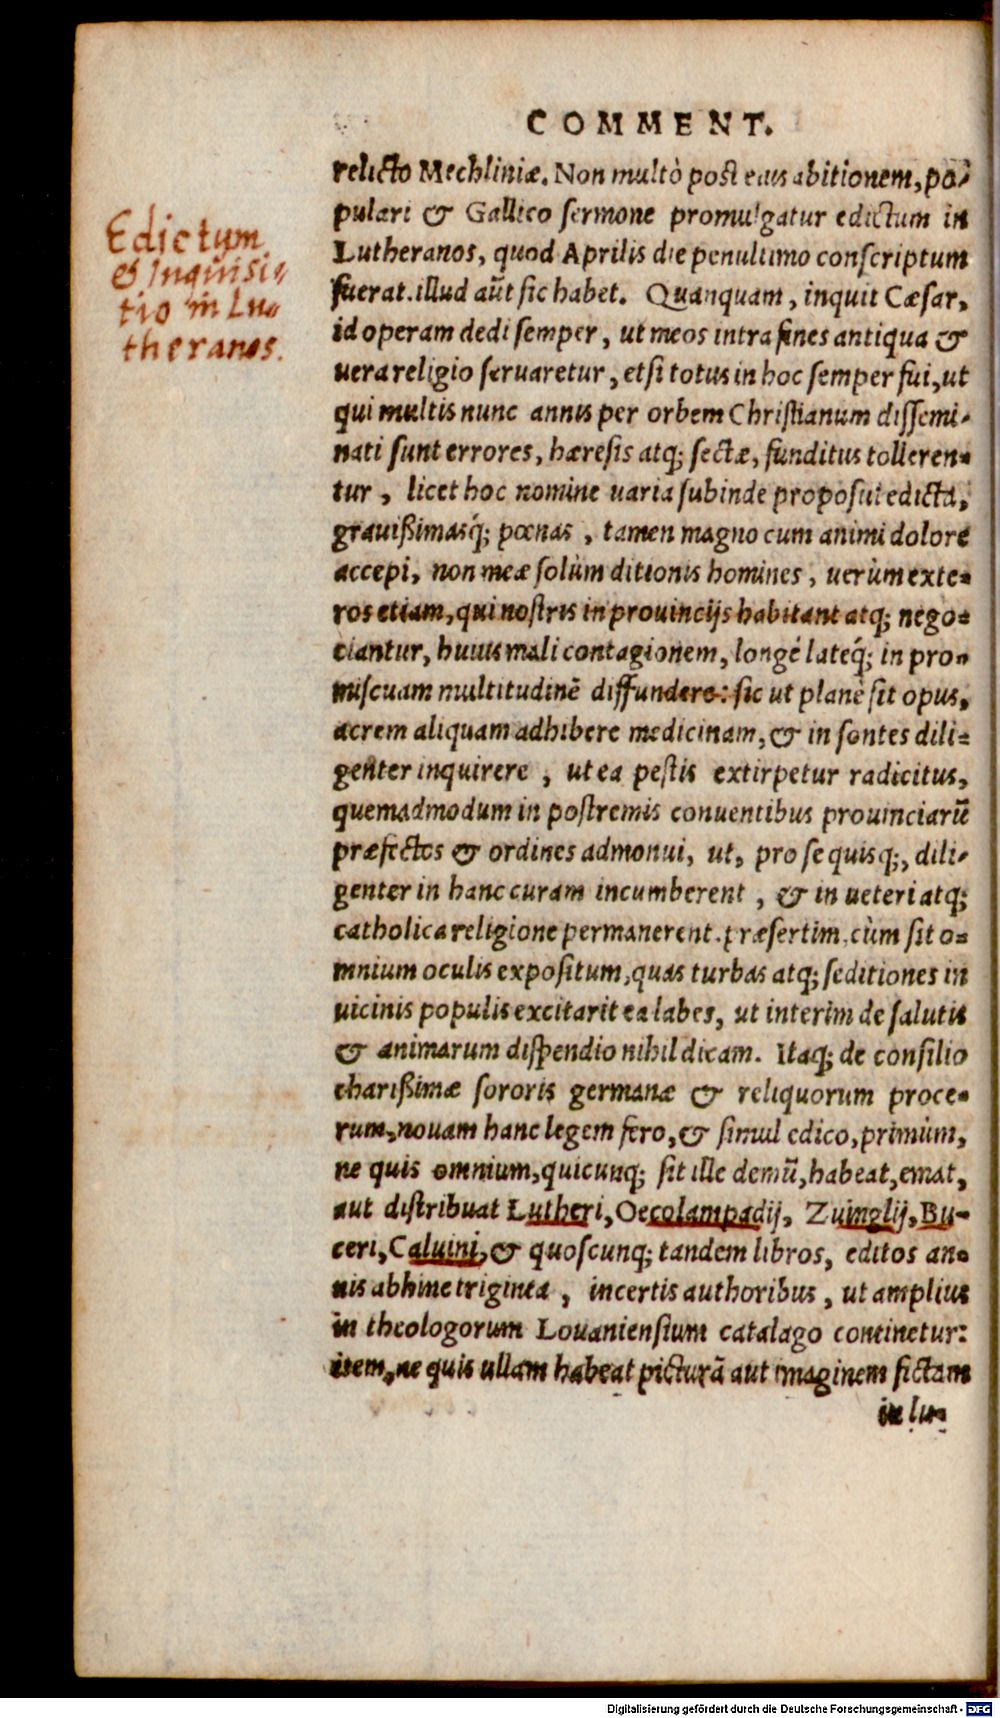 COMMENT.
relicto Mechliniæ. Non multò post eius abitionem, po-
pulari & Gallico sermone promulgatur edictum in
Lutheranos, quod Aprilis die penultimo conscriptum
fuerat. illud aūt sic habet. Quanquam, inquit Cæsar,
id operam dedi semper, ut meos intra fines antiqua &
uera religio seruaretur, etsi totus in hoc semper fui, ut
qui multis nunc annis per orbem Christianum dissemi-
nati sunt errores, hæresis atq; sectæ, funditus tolleren-
tur, licet hoc nomine uaria subinde proposui edicta,
grauißimasq́; pœnas, tamen magno cum animi dolore
accepi, non meæ solùm ditionis homines, uerùm exte-
ros etiam, qui nostris in prouincijs habitant atq; nego-
ciantur, huius mali contagionem, longè lateq́; in pro-
miscuam multitudinē diffundere: sic ut planè sit opus,
acrem aliquam adhibere medicinam, & in sontes dili-
genter inquirere, ut ea pestis extirpetur radicitus,
quemadmodum in postremis conuentibus prouinciarū
præfectos & ordines admonui, ut, pro se quisq;, dili-
genter in hanc curam incumberent, & in ueteri atq;
catholica religione permanerent. præsertim, cùm sit o-
mnium oculis expositum, quas turbas atq; seditiones in
uicinis populis excitarit ea labes, ut interim de salutis
& animarum dispendio nihil dicam. Itaq; de consilio
charißimæ sororis germanæ & reliquorum proce-
rum, nouam hanc legem fero, & simul edico, primùm,
ne quis omnium, quicunq; sit ille demū, habeat, emat,
aut distribuat Lutheri, Oecolampadij, Zuinglij, Bu-
ceri, Caluini, & quoscunq; tandem libros, editos an-
nis abhinc triginta, incertis authoribus, ut amplius
in theologorum Louaniensium catalago continetur:
item, ne quis ullam habeat picturā aut imaginem fictam
in lu-
Edictum
& Inquisi-
tio in Lu-
theranos.
Digitalisierung gefördert durch die Deutsche Forschungsgemeinschaft - DFG